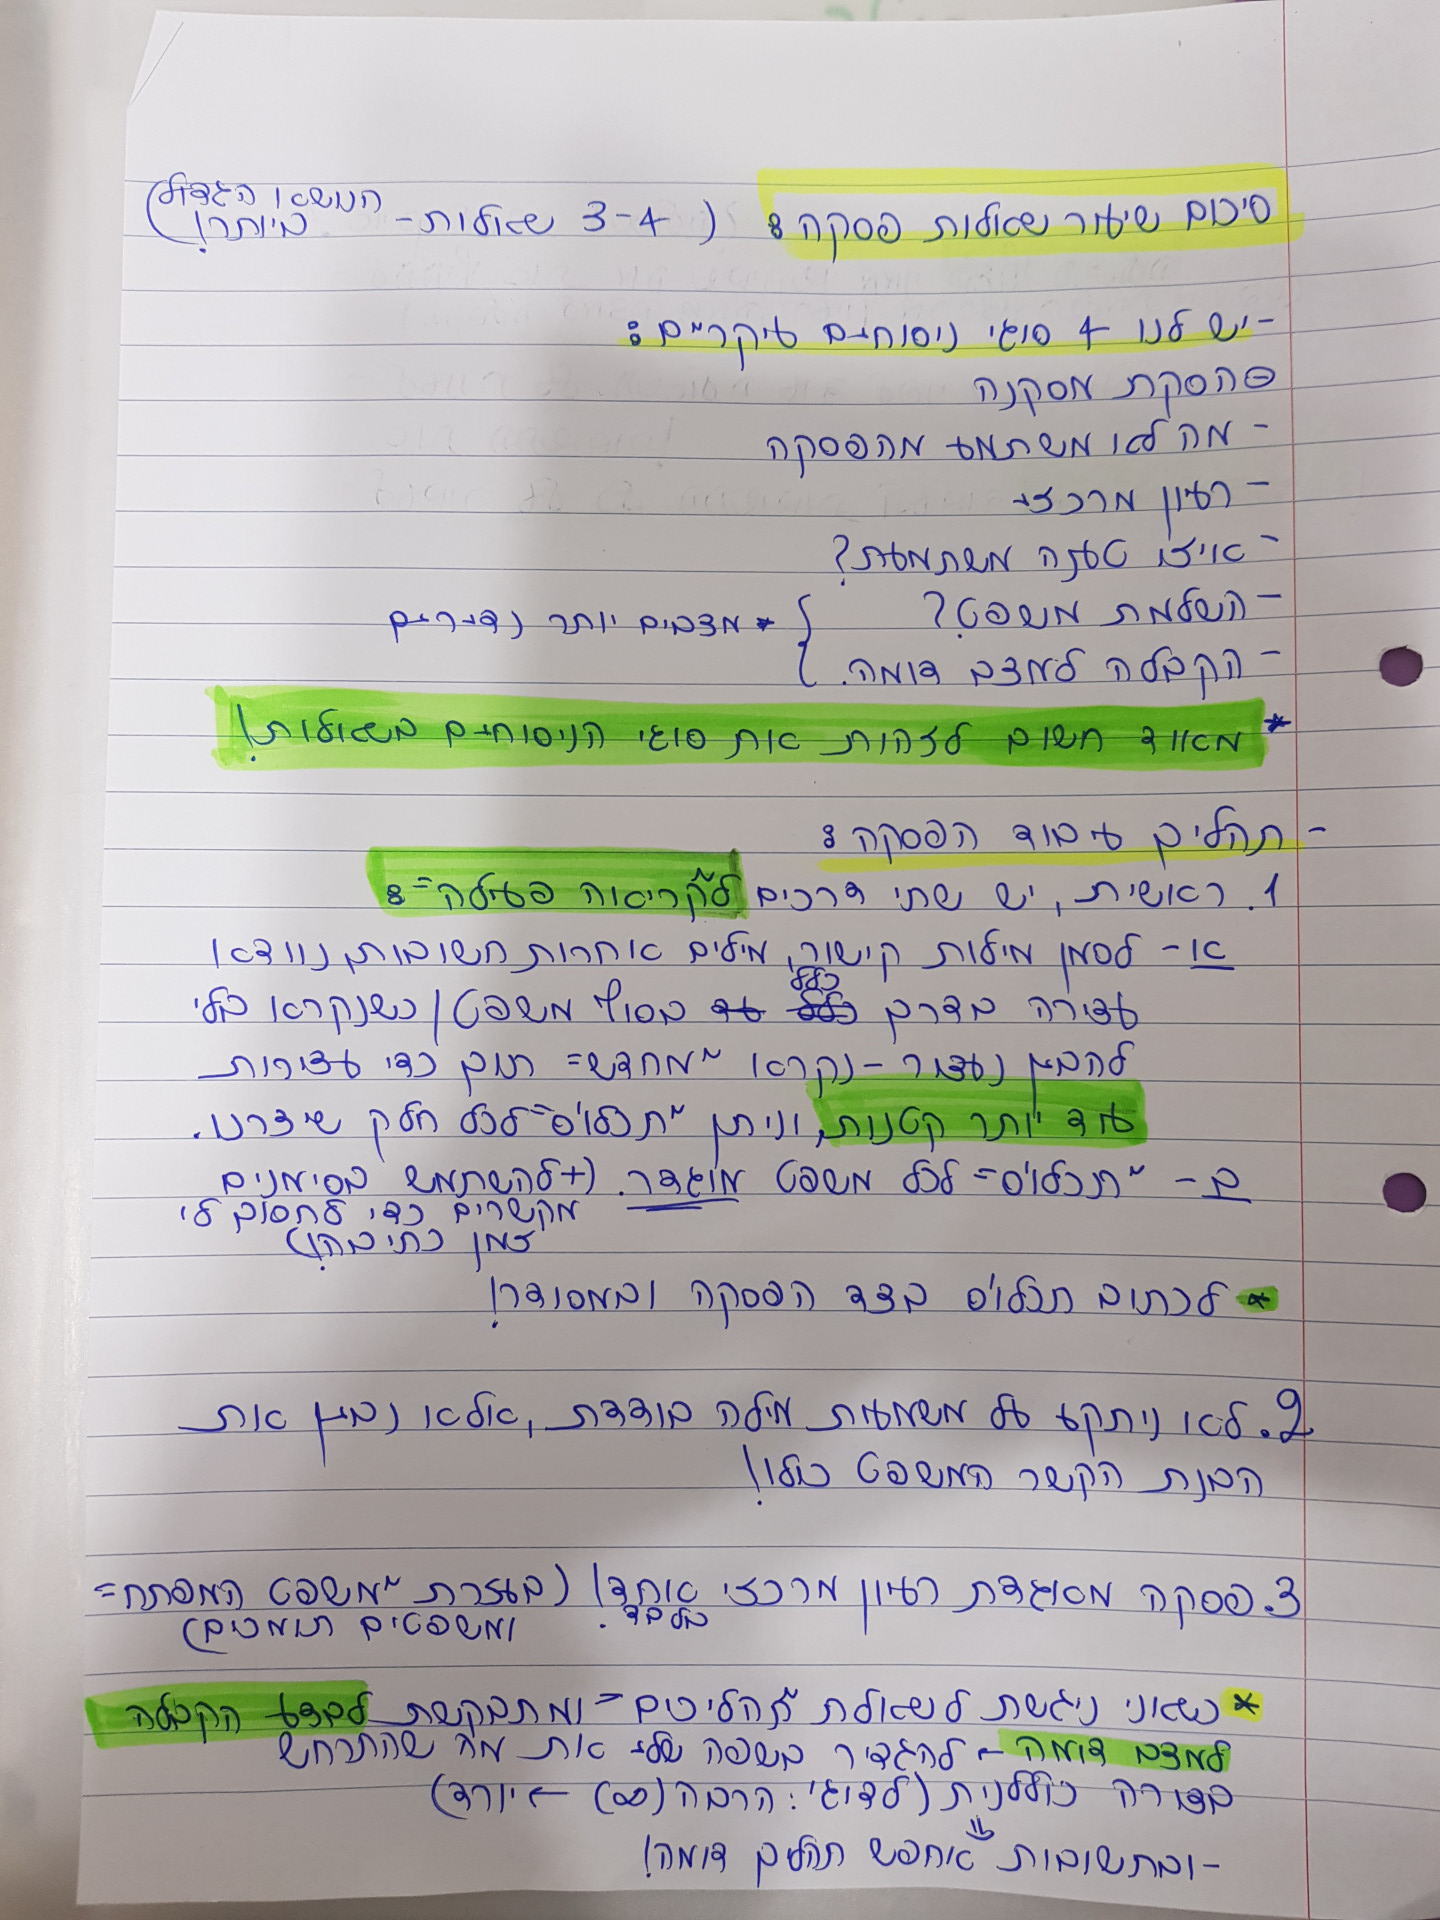 סיכום שיעור שאלות פסקה: (3-4 שאלות- הנושא הגדול
מיותר!)
-יש לנו 4 סוגי ניסוחים עיקריים:
-הסקת מסקנה
- מה לא משתמע מהפסקה
- רעיון מרכזי
- איזו טענה משתמעת?
- השלמת משפט?
- הקבלה למצב דומה. } * מצבים יותר נדירים
* מאוד חשוב לזהות את סוגי הניסוחים בשאלות!
- תהליך עיבוד הפסקה:
1. ראשית, יש שתי דרכים ל"קריאה פעילה":
א- לסמן מילות קישור, מילים אחרות חשובות, נוודא
עצירה בדרך כלל בסוף משפט/כשנקרא בלי
להבין נעצור - נקרא "מחדש" תוך כדי עצירות
עוד יותר קטנות, וניתן "תכלו'ס" לכל חלק שיצרנו.
ב- "תכלו'ס" לכל משפט מוגדר. (+להשתמש בסימנים
מקשרים כדי לחסוך לי
זמן כתיבה!)
* לכתוב תכלו'ס בצד הפסקה ובמסודר!
2. לא ניתקע על משמעות מילה בודדת, אלא נבין את
הבנת הקשר המשפט כולו!
3. פסקה מאוגדת רעיון מרכזי אחד! (בעזרת "משפט המפתח"
בלבד. ומשפטים תומכים)
* כשאני ניגשת לשאלת "תהליכים" ומתבקשת לבצע הקבלה
למצב דומה - להגדיר בשפה שלי את מה שהתרחש
בצורה כוללנית (לדוג': הרבה (∞) ← יורד)
-ובתשובות אחפש תהליך דומה!